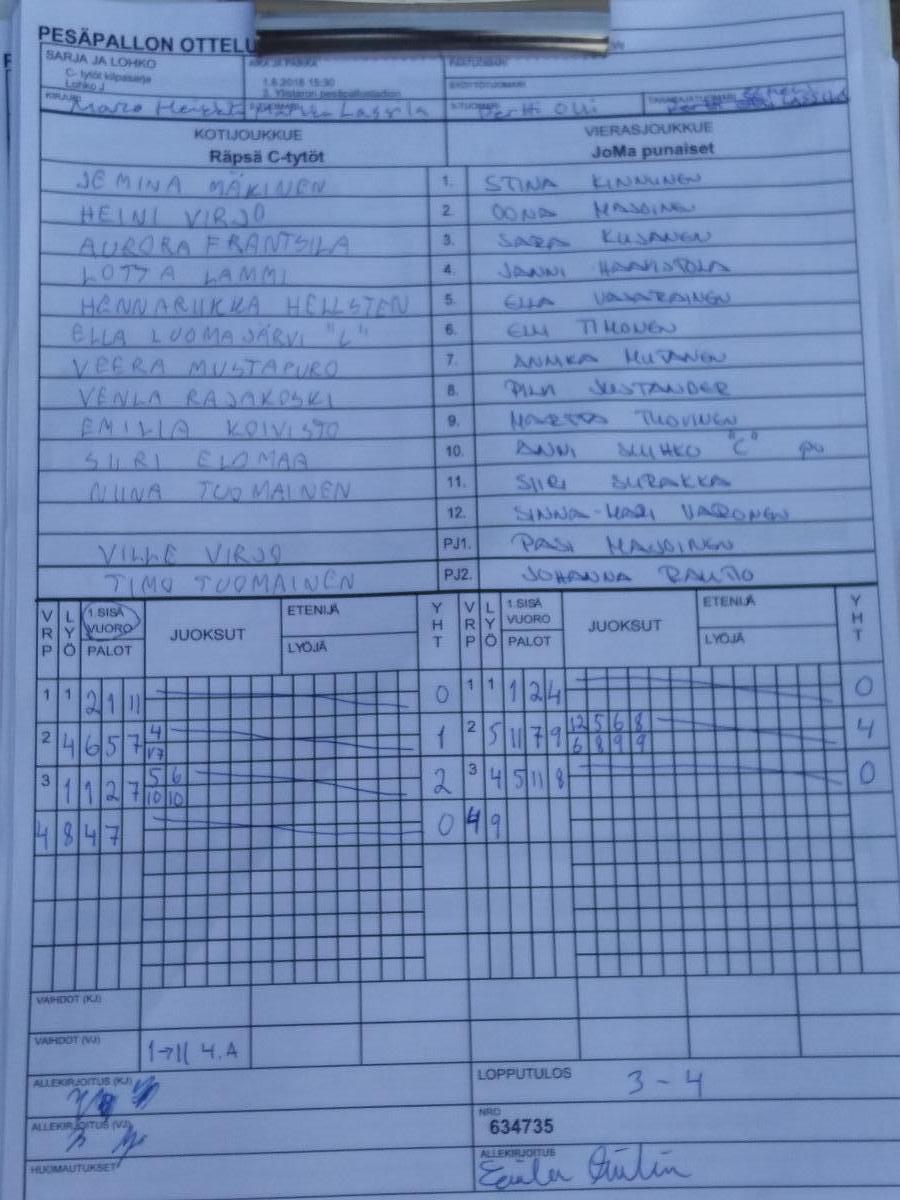 PESÄPALLON OTTELU
SARJA JA LOHKO
C- tytöt kilpasarja
Lohko J
1.6.2018 15:30
3. Ylistaron pesäpallostadion
KIRJURI
Pertti Olli
KOTIJOUKKUE VIERASJOUKKUE
Räpsä C-tytöt JoMa punaiset
JEMINA MÄKINEN 1. STINA KINNUNEN
HEINI VIRJO 2. OONA
AURORA FRANTSILA 3. SARA
LOTTA LAMMI 4. JANNI
HENNARIIKKA HELLSTEN 5. ELLA
ELLA LUOMAJÄRVI "C" 6. ELLI TIMONEN
VEERA MUSTAPURO 7. ANNIKA MUTANEN
VENLA RAJAKOSKI 8. PILA
EMILIA KOIVISTO 9. TUOVINEN
SIIRI ELOMAA 10. ANNI "C"
NIINA TUOMAINEN 11. SIIRI SURAKKA
12. SINNA-MARI VARONEN
VILLE VIRJO PJ1. PASI
TIMO TUOMAINEN PJ2. JOHANNA RAUTIO
VRP LYÖ 1.SISÄ VUORO PALOT JUOKSUT ETENIJÄ LYÖJÄ YHT VRP LYÖ 1.SISÄ VUORO PALOT JUOKSUT ETENIJÄ LYÖJÄ YHT
1 1 2 1 11 0 1 1 1 2 4 0
2 4 6 5 7 4 1 2 5 11 7 9 12 5 6 8 4
V7 6 8 9 9
3 1 1 2 7 5 6 2 3 4 5 11 8 0
10 10
4 8 4 7 0 4 9
VAIHDOT (KJ)
VAIHDOT (VJ) 1→11 4.A
ALLEKIRJOITUS (KJ) LOPPUTULOS 3 - 4
ALLEKIRJOITUS (VJ) NRO
634735
HUOMAUTUKSET ALLEKIRJOITUS